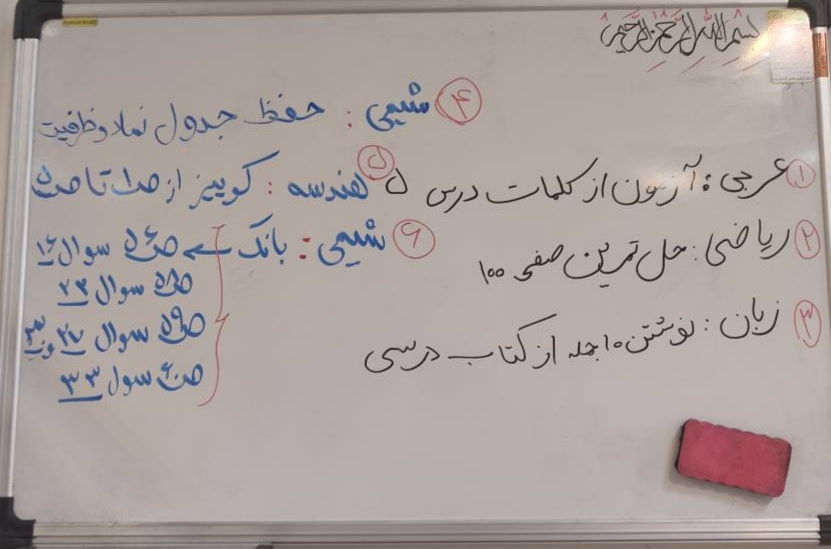 بسم الله الرحمن الرحیم
۱ عربی: آزمون از کلمات درس ۵
۲ ریاضی: حل تمرین صفحه ۱۰۰
۳ زبان: نوشتن ۱۰ جمله از کتاب درسی
۴ شیمی: حفظ جدول نماد و ظرفیت
۵ هندسه: کوییز از ص۱ تا ص
۶ شیمی: بانک ← سوال ۱۶
سوال ۲۳
سوال ۲۷ و ۳۰
ص۶۰ سول ۳۳